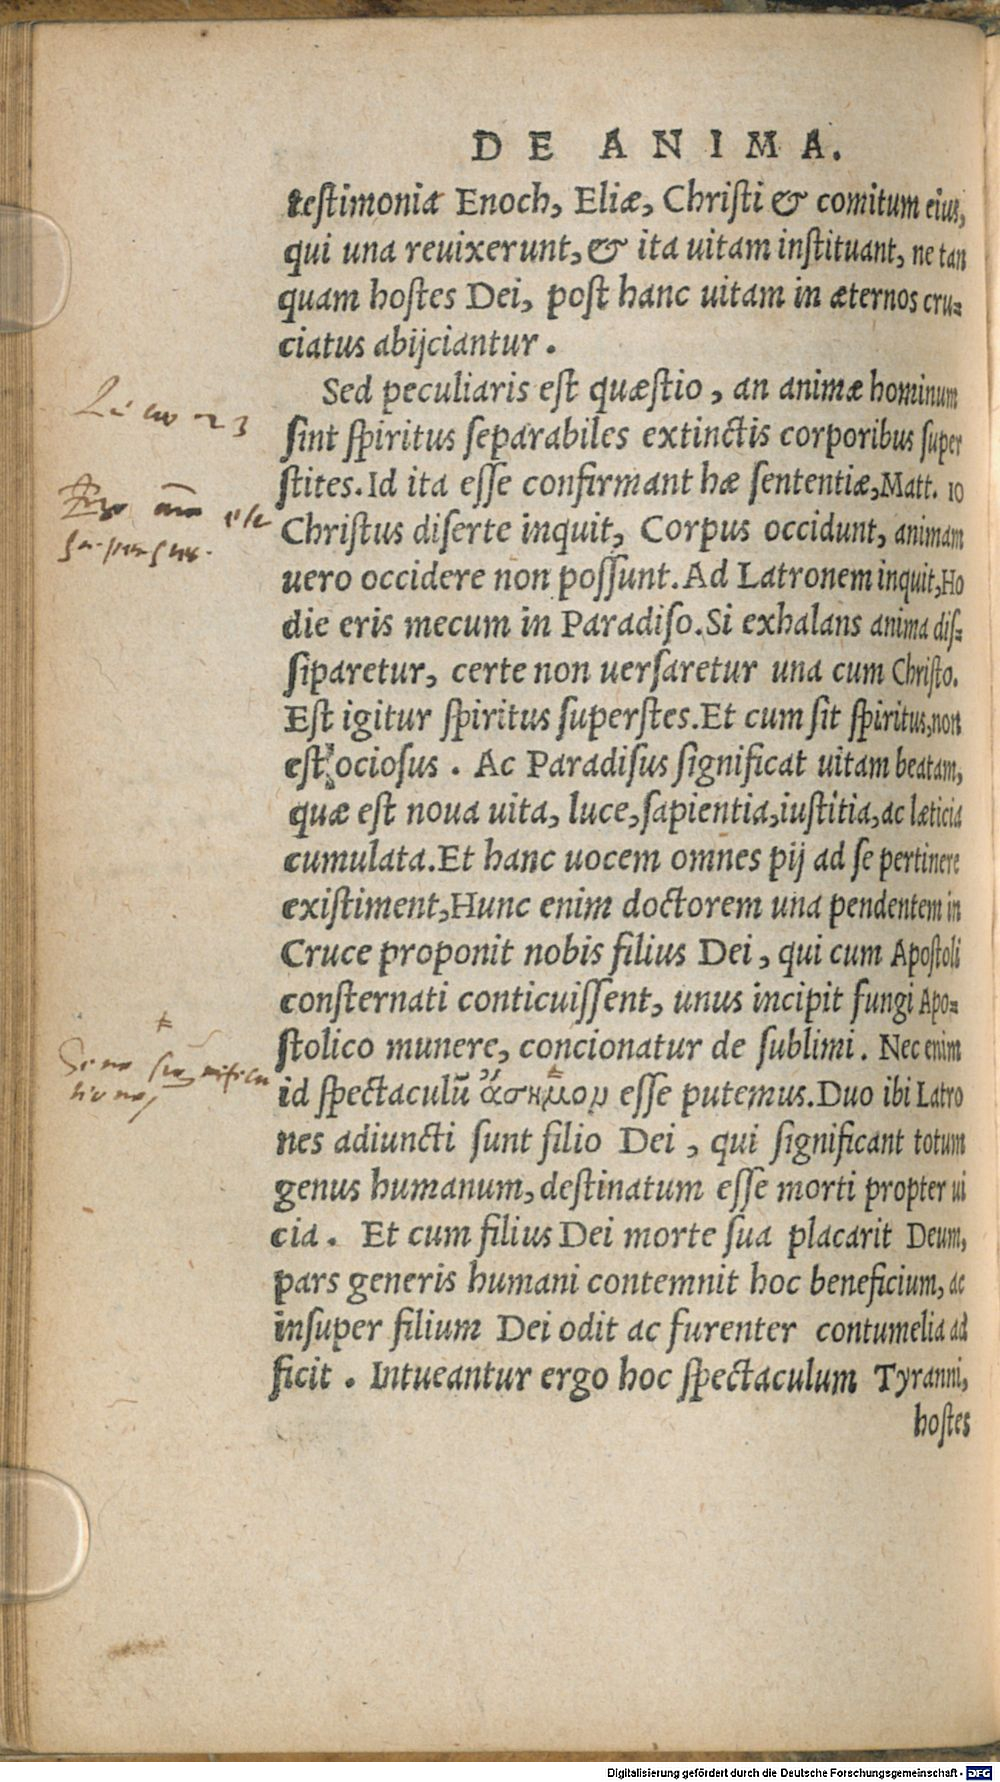 DE ANIMA.
testimonia Enoch, Eliæ, Christi & comitum eius,
qui una reuixerunt, & ita uitam instituant, ne tan
quam hostes Dei, post hanc uitam in æternos cru-
ciatus abijciantur.
Sed peculiaris est quæstio, an animæ hominum
sint spiritus separabiles extinctis corporibus super
stites. Id ita esse confirmant hæ sententiæ, Matt. 10
Christus diserte inquit, Corpus occidunt, animam
uero occidere non possunt. Ad Latronem inquit, Ho
die eris mecum in Paradiso. Si exhalans anima dis-
siparetur, certe non uersaretur una cum Christo.
Est igitur spiritus superstes. Et cum sit spiritus, non
est ociosus. Ac Paradisus significat uitam beatam,
quæ est noua uita, luce, sapientia, iustitia, ac læticia
cumulata. Et hanc uocem omnes pij ad se pertinere
existiment, Hunc enim doctorem una pendentem in
Cruce proponit nobis filius Dei, qui cum Apostoli
consternati conticuissent, unus incipit fungi Apo-
stolico munere, concionatur de sublimi. Nec enim
id spectaculũ ἄσημον esse putemus. Duo ibi Latro
nes adiuncti sunt filio Dei, qui significant totum
genus humanum, destinatum esse morti propter ui
cia. Et cum filius Dei morte sua placarit Deum,
pars generis humani contemnit hoc beneficium, ac
insuper filium Dei odit ac furenter contumelia ad
ficit. Intueantur ergo hoc spectaculum Tyranni,
hostes
23
est
significa
tione
Digitalisierung gefördert durch die Deutsche Forschungsgemeinschaft - DFG